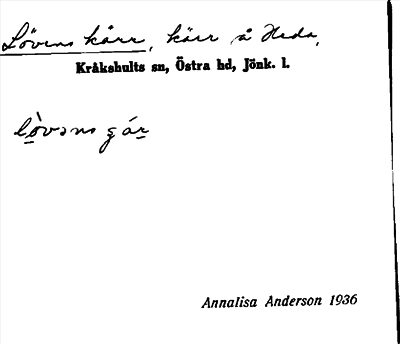 Lövens kärr, kärr å Heda,
Kråkshults sn, Östra hd, Jönk. l.
lòvəns gár
Annalisa Anderson 1936